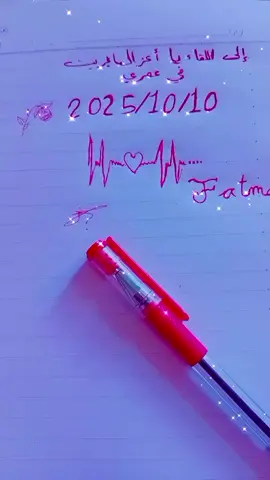 إلى اللقاء يا أعز العابرين
في عمري
2025/10/10
Fatma